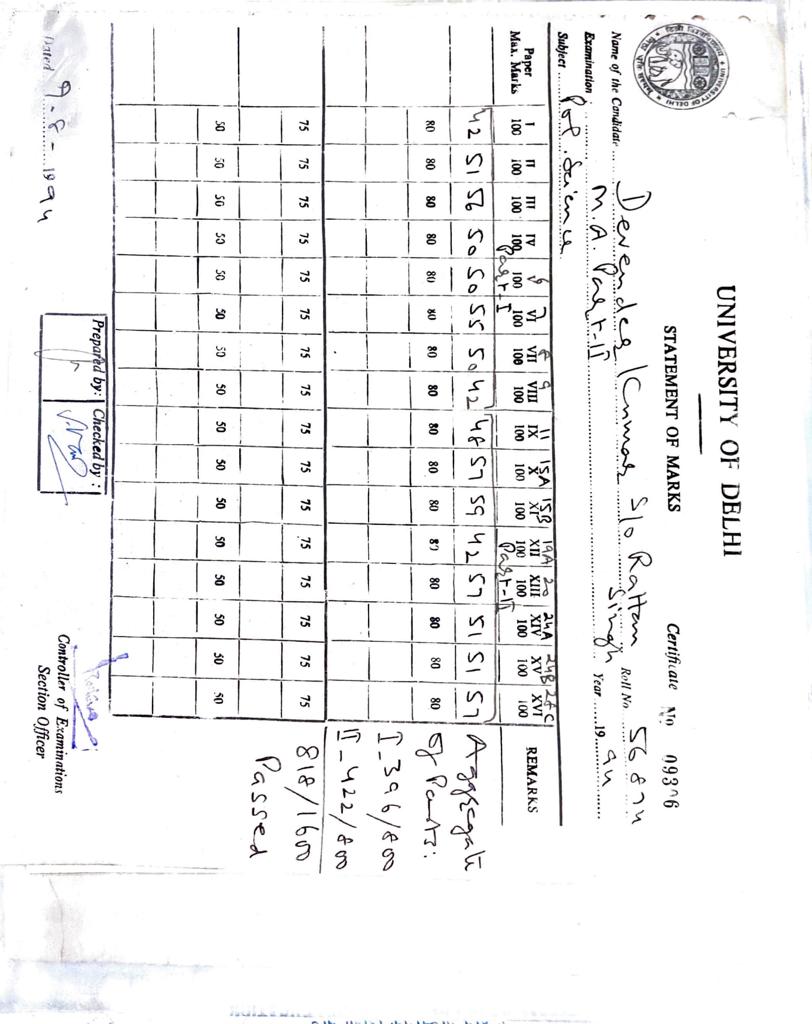 UNIVERSITY OF DELHI
STATEMENT OF MARKS
Certificate No
Name of the Candidate Devender Kumar S/o Rattan Singh Roll No.
Examination M.A. Part-II Year 1994
Subject Pol. Science
7 8 9 11 15A 15B 19A 20 24A 24B
Paper I II III IV VI VII VIII IX X XI XII XIII XIV XV XVI REMARKS
Max. Marks 100 100 100 100 100 100 100 100 100 100 100 100 100 100 100 100
Part-I Part-II
42 51 56 50 50 55 50 42 48 57 59 42 57 51 51 57 Aggregate
80 80 80 80 80 80 80 80 80 80 80 80 80 80 80 80 of Parts:
I-396/800
II-422/800
75 75 75 75 75 75 75 75 75 75 75 75 75 75 75 75 818/1600
Passed
50 50 50 50 50 50 50 50 50 50 50 50 50 50 50 50
Prepared by: Checked by:
Dated 9-8-1994
Controller of Examinations
Section Officer